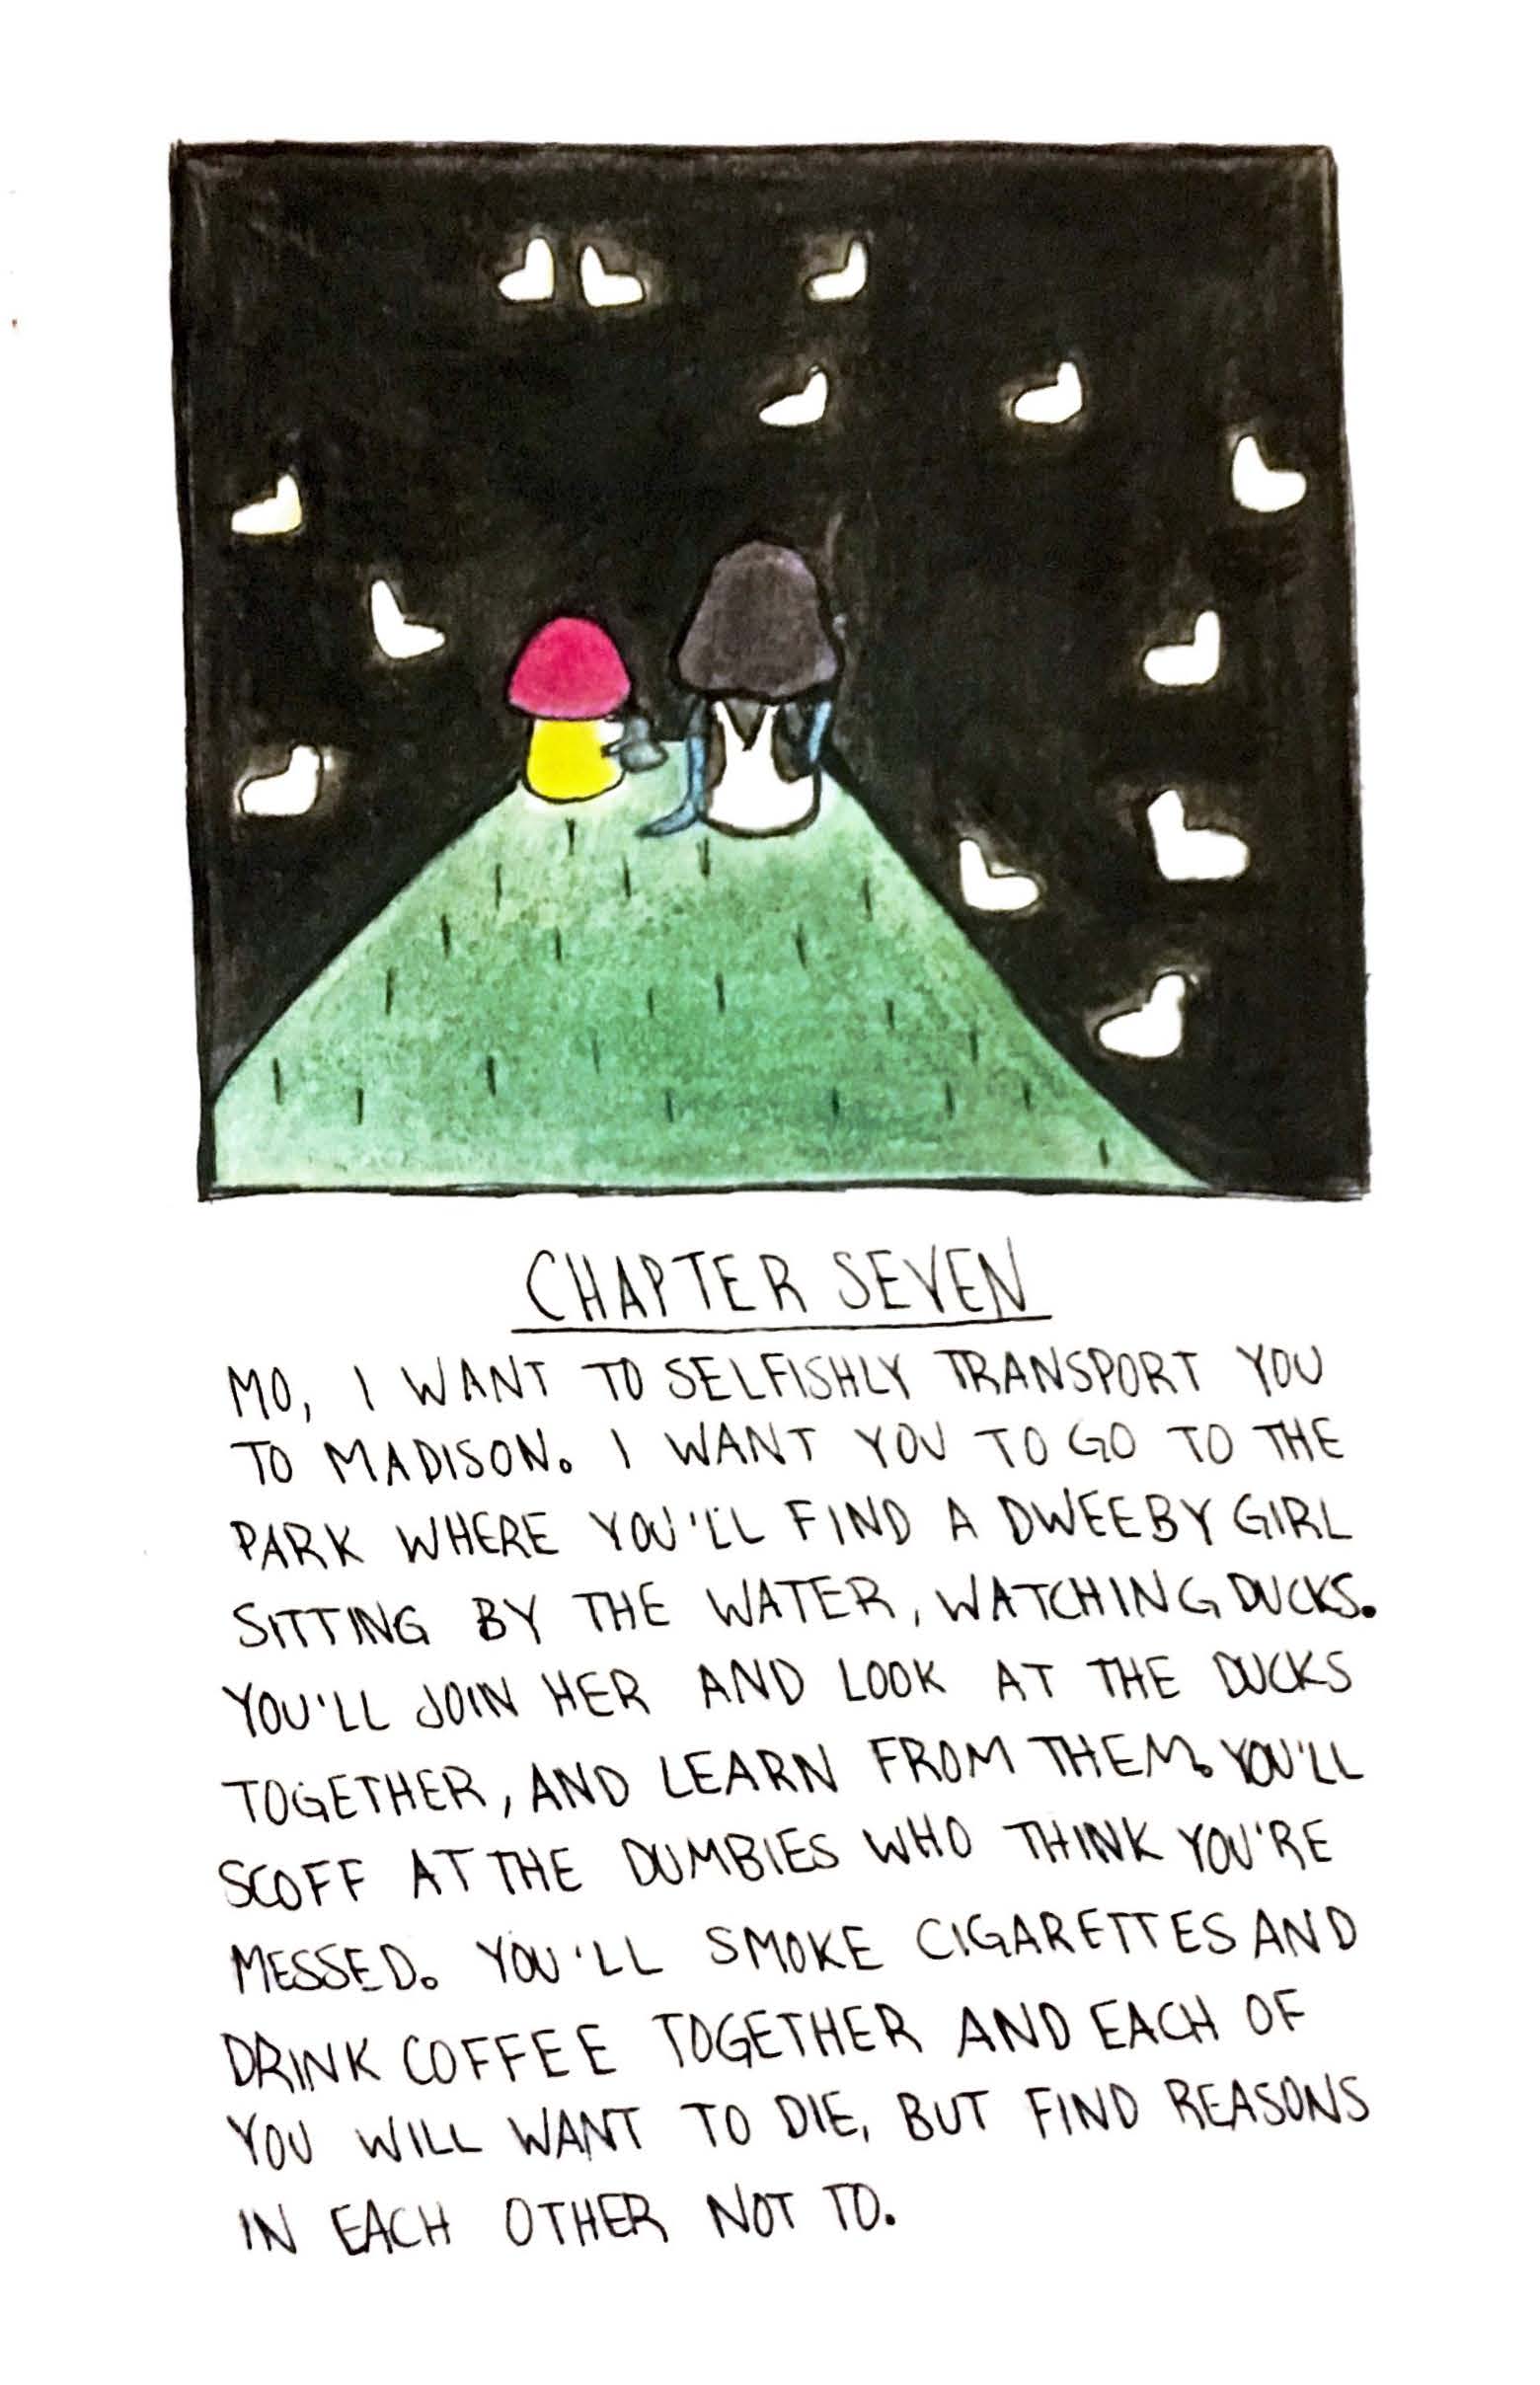 CHAPTER SEVEN
MO, I WANT TO SELFISHLY TRANSPORT YOU
TO MADISON. I WANT YOU TO GO TO THE
PARK WHERE YOU'LL FIND A DWEEBY GIRL
SITTING BY THE WATER, WATCHING DUCKS.
YOU'LL JOIN HER AND LOOK AT THE DUCKS
TOGETHER, AND LEARN FROM THEM. YOU'LL
SCOFF AT THE DUMBIES WHO THINK YOU'RE
MESSED. YOU'LL SMOKE CIGARETTES AND
DRINK COFFEE TOGETHER AND EACH OF
YOU WILL WANT TO DIE, BUT FIND REASONS
IN EACH OTHER NOT TO.